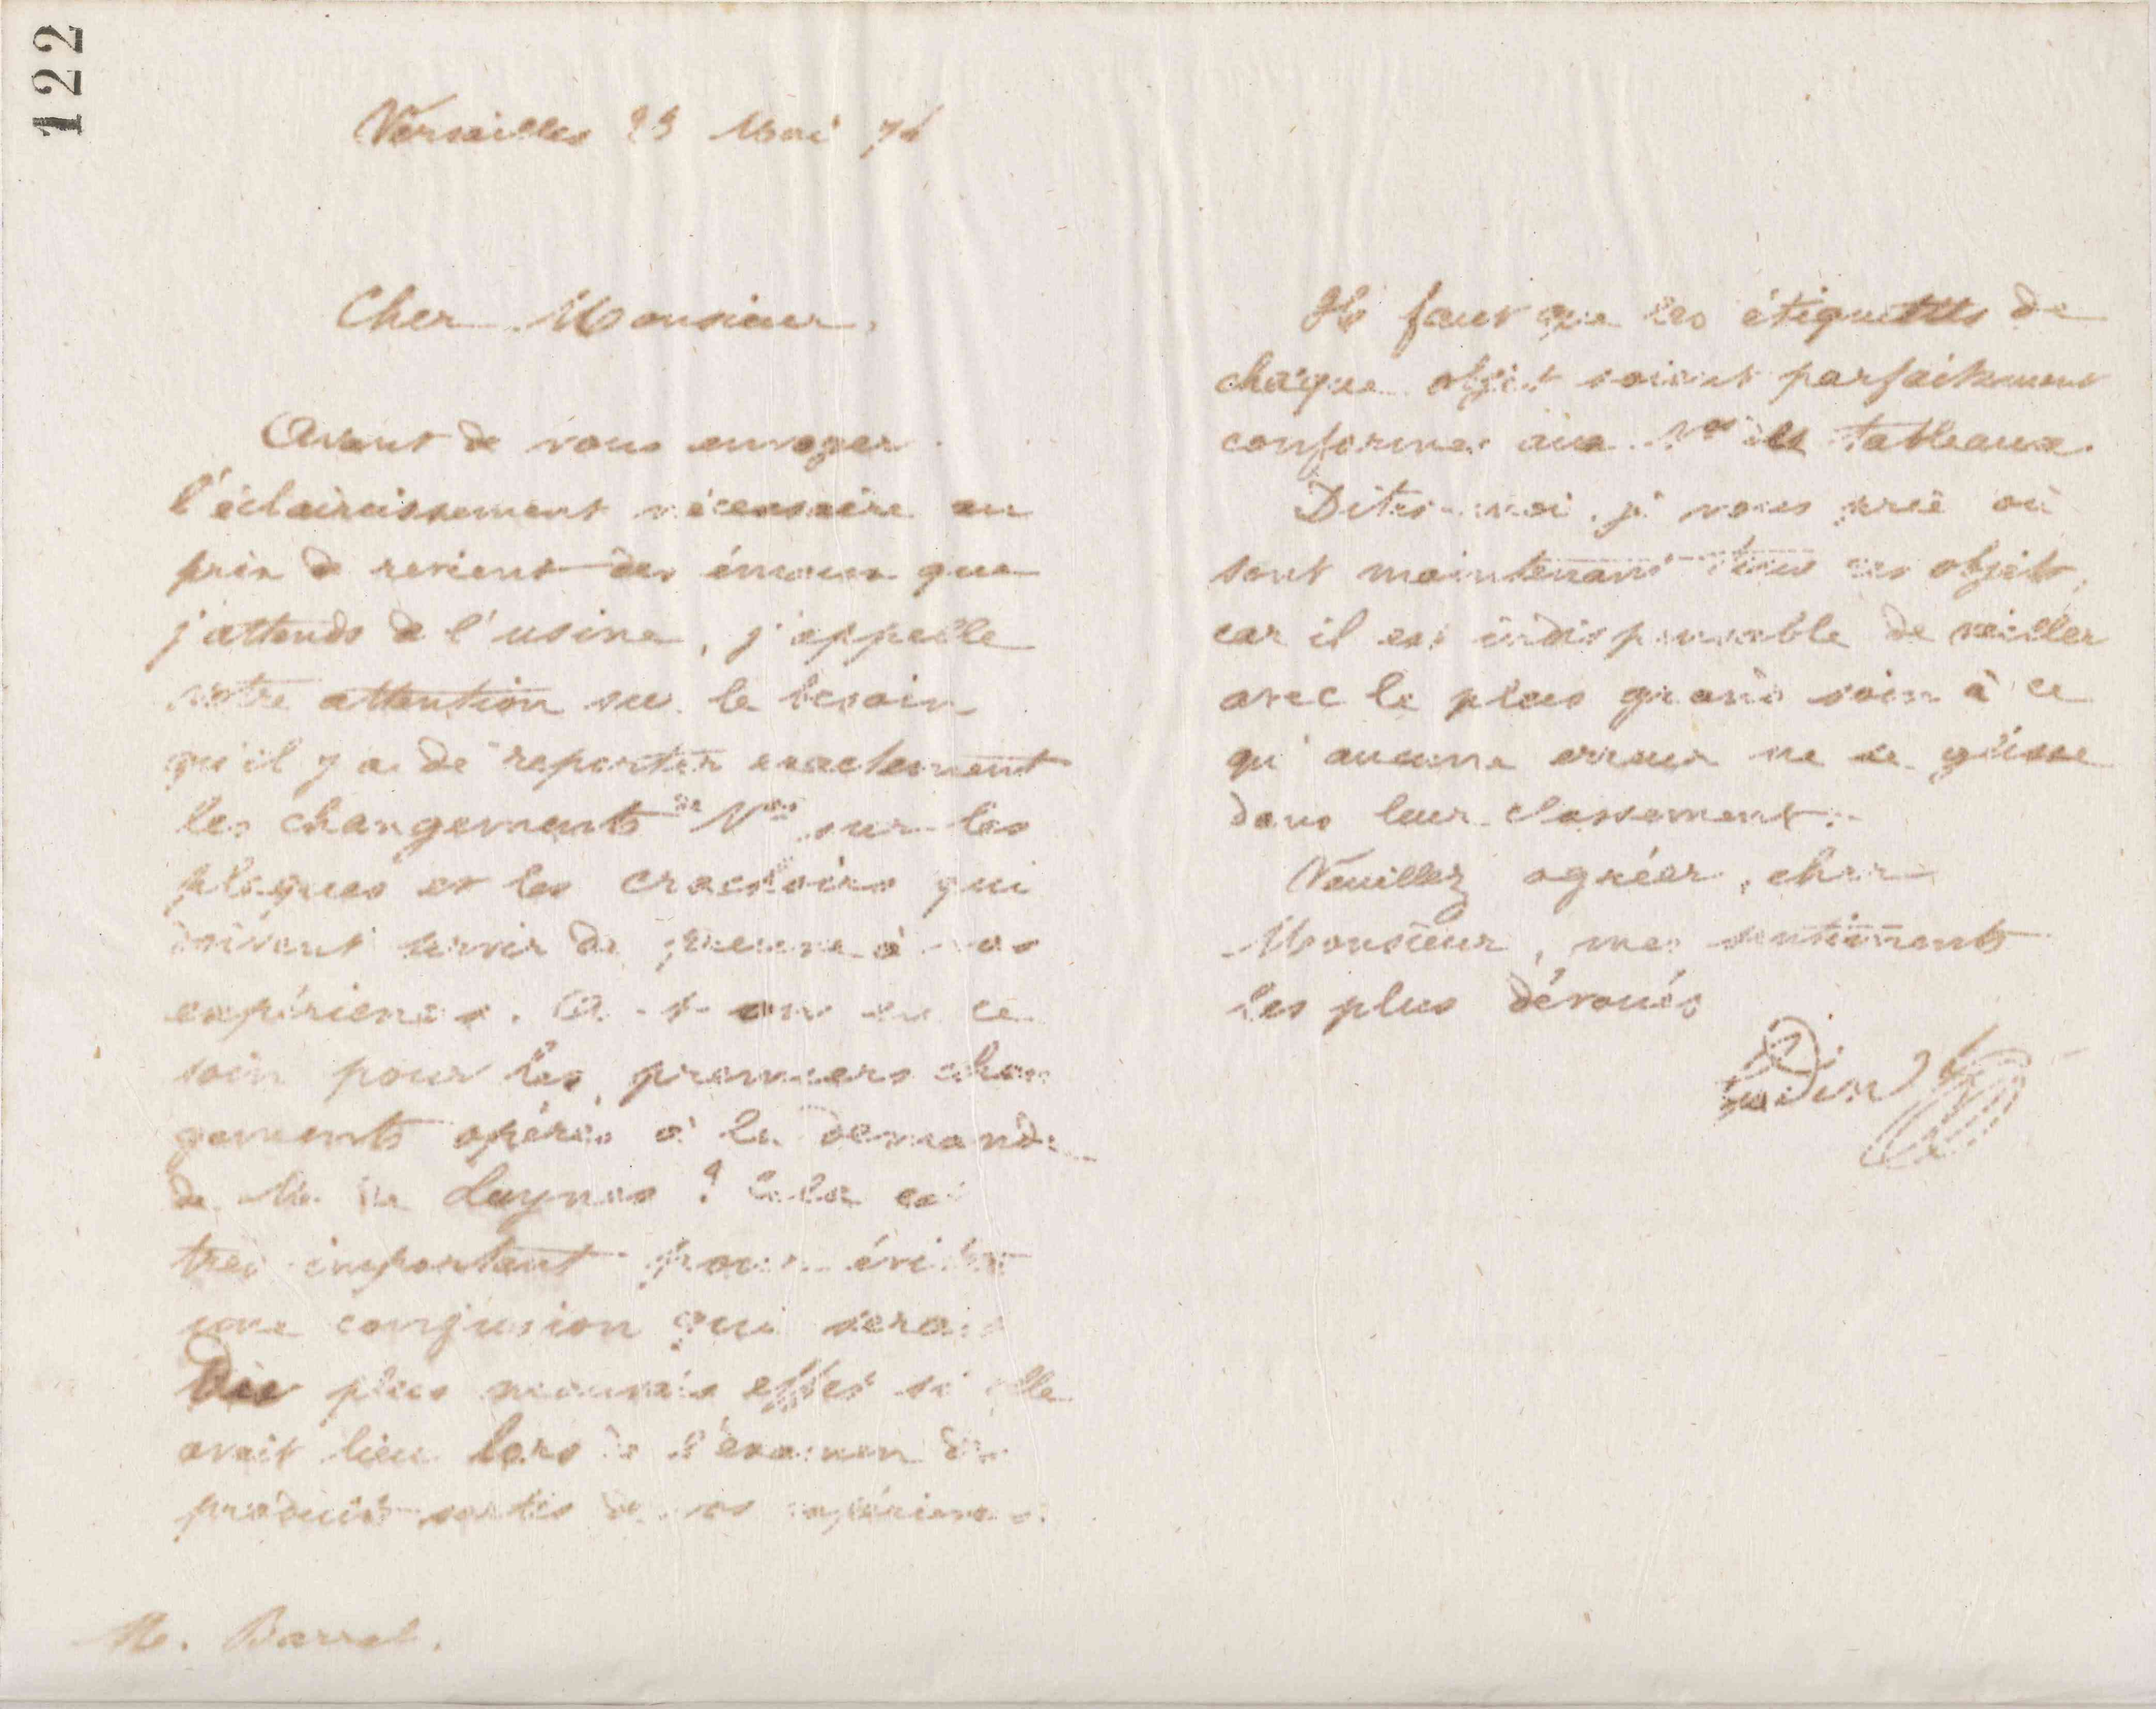 122
Versailles 23 Mai 74
Cher Monsieur,
Avant de vous envoyer
l'éclaircissement nécessaire au
prix de revient des émaux que
j'attends de l'usine, j'appelle
votre attention sur le besoin
qu'il y a de reporter exactement
les changements de Nos sur les
plaques et les crachoirs qui
doivent servir de preuve à nos
expériences. A-t-on eu ce
soin pour les premiers chan
gements opérés à la demande
de M. de Luynes ? Cela est
très important pour éviter
une confusion qui serait
du plus mauvais effet si elle
avait lieu lors de l'examen des
produits sortis de nos expériences.
M. Barral.
Il faut que les étiquettes de
chaque objet soient parfaitement
conformes aux Nos des tableaux.
Dites-moi, je vous prie où
sont maintenant tous ces objets,
car il est indispensable de veiller
avec le plus grand soin à ce
qu'aucune erreur ne se glisse
dans leur classement.
Veuillez agréer, cher
Monsieur, mes sentiments
les plus dévoués
Godin